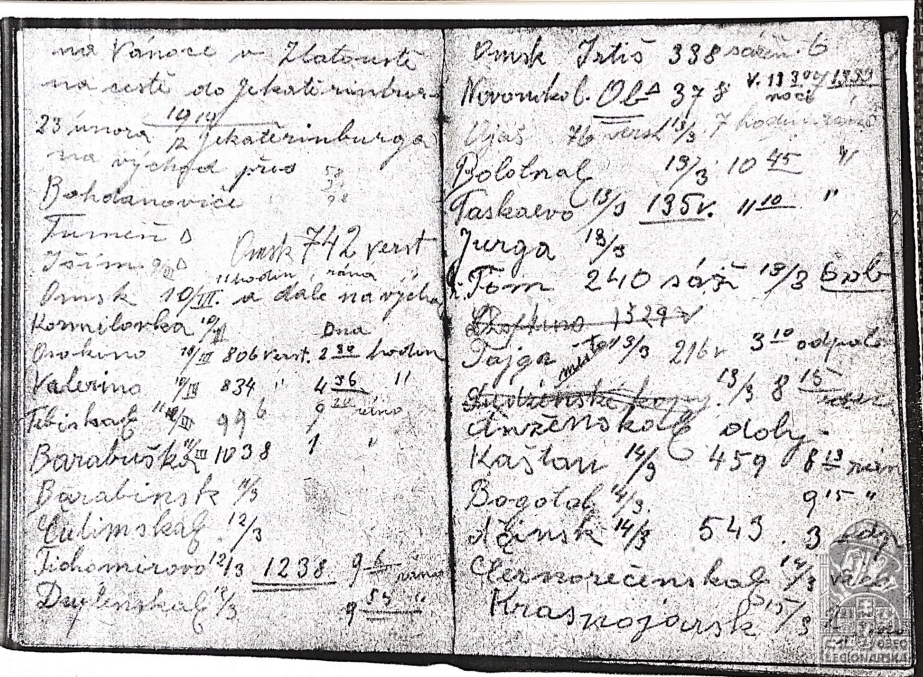 na Vánoce v Zlatoustě
na cestě do Jekatěrinbur-
1919
23 února z Jekatěrinburga
na východ přes
Bohdanoviče
Tumeň Omsk 742 verst
Išim 9/III
11 hodin ráno
Omsk 10/III. a dale na výcho
Kormilovka 10/III Dna
10/III 806 verst. 2 30 hodin
Valerino 10/III 834 " 4 36 "
9 20 ráno
11/III 996
Barabuška 11/III 1038 1 "
Barabinsk 11/3
Čulimskaja 12/3
Tichomirovo 12/3 1238 9 6 ráno
Duplenskaja 13/3 9 54 "
Omsk Irtiš 338 sážň. 6
Novonikol. Ob 378 V. 13 30/4 1333
noci
Ojaš 76 verst 13/3 7 hodin ráno
Bolotnaj 13/3 10 45 "
Taskaevo 13/3 135 v. 11 10 "
Jurga 13/3
Ř. Tom 240 sáž 13/3
1329 v
Tajga město 13/3 216 v 3 10 odpol
13/3 8 15
Anženskaj doly.
Kaštan 14/3 459 8 13 rán
Bogotol 14/3. 9 15 "
Ačinsk 14/3 543. 3 odp
Černorečenskaj 14/3 več
Krasnojarsk 15/3
LEGIONÁŘSKÁ